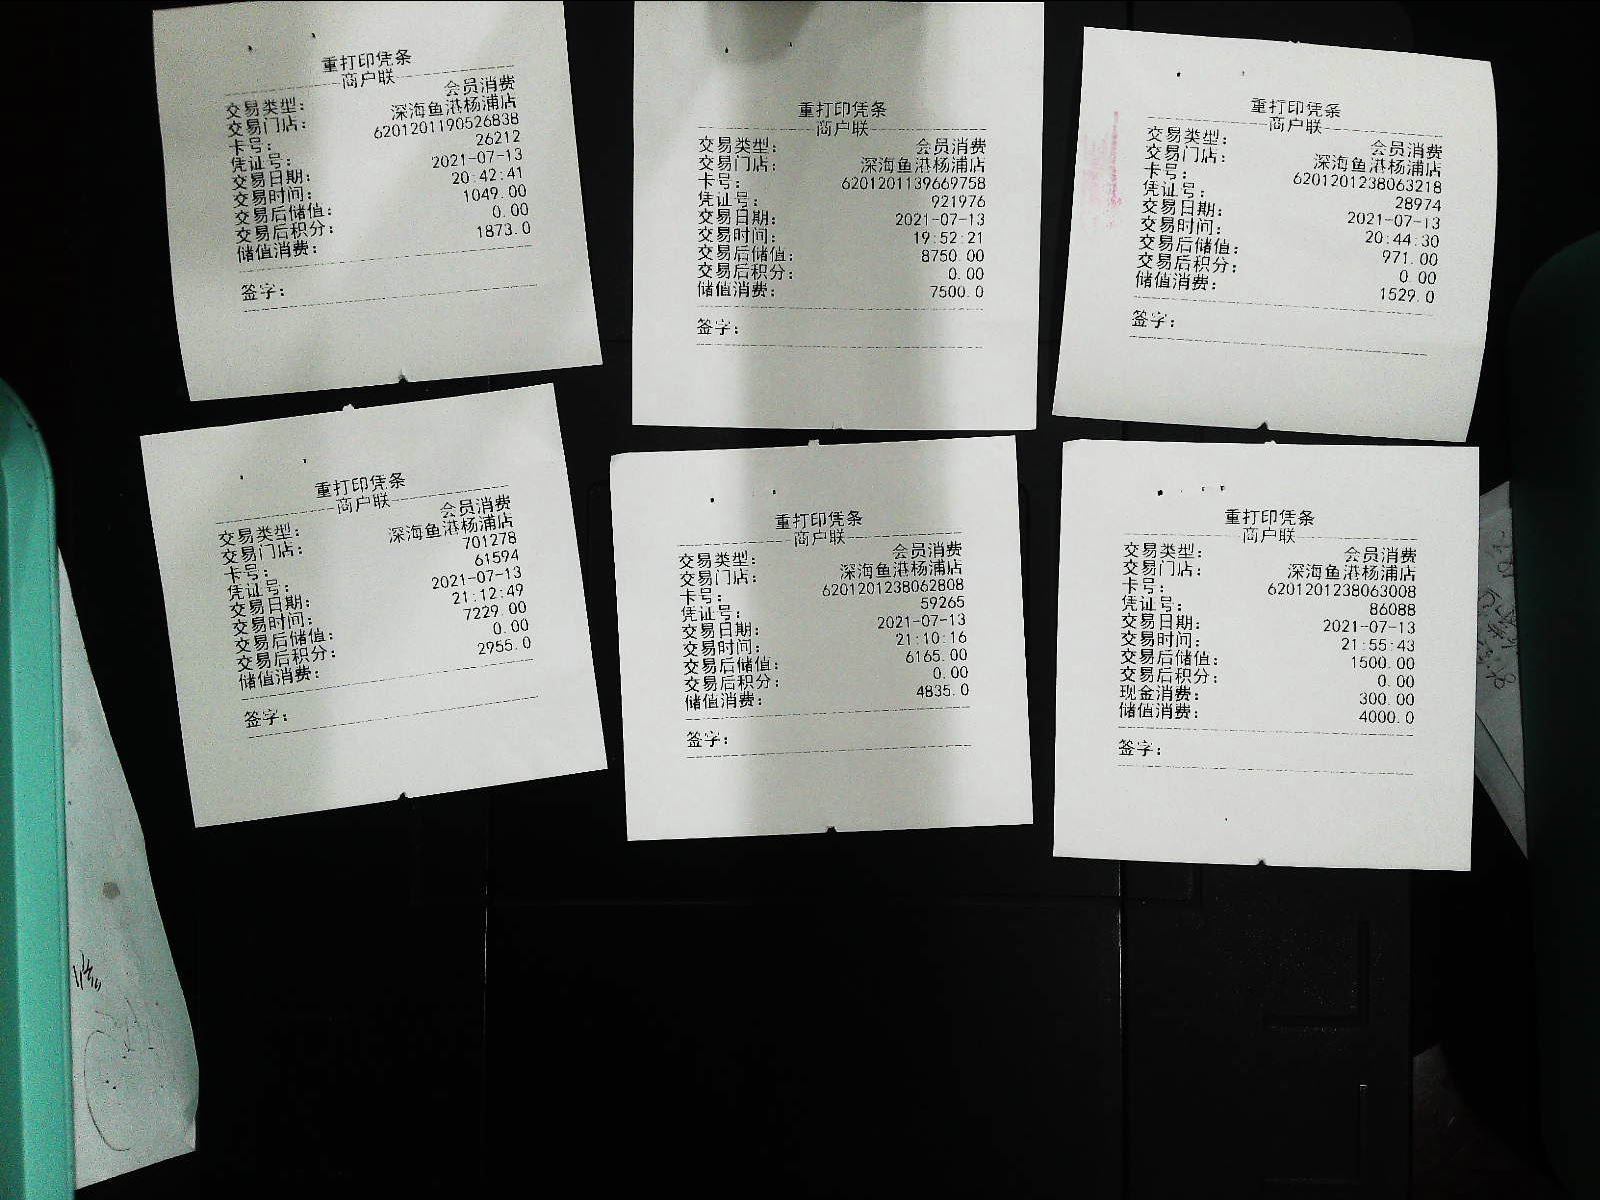 重打印凭条
商户联
交易类型： 会员消费
交易门店： 深海鱼港杨浦店
卡号： 6201201190526838
凭证号： 26212
交易日期： 2021-07-13
交易时间： 20:42:41
交易后储值： 1049.00
交易后积分： 0.00
储值消费： 1873.0
签字：
重打印凭条
商户联
交易类型： 会员消费
交易门店： 深海鱼港杨浦店
卡号： 6201201139669758
凭证号： 921976
交易日期： 2021-07-13
交易时间： 19:52:21
交易后储值： 8750.00
交易后积分： 0.00
储值消费： 7500.0
签字：
重打印凭条
商户联
交易类型： 会员消费
交易门店： 深海鱼港杨浦店
卡号： 6201201238063218
凭证号： 28974
交易日期： 2021-07-13
交易时间： 20:44:30
交易后储值： 971.00
交易后积分： 0.00
储值消费： 1529.0
签字：
重打印凭条
商户联
交易类型： 会员消费
交易门店： 深海鱼港杨浦店
卡号： 701278
凭证号： 61594
交易日期： 2021-07-13
交易时间： 21:12:49
交易后储值： 7229.00
交易后积分： 0.00
储值消费： 2955.0
签字：
重打印凭条
商户联
交易类型： 会员消费
交易门店： 深海鱼港杨浦店
卡号： 6201201238062808
凭证号： 59265
交易日期： 2021-07-13
交易时间： 21:10:16
交易后储值： 6165.00
交易后积分： 0.00
储值消费： 4835.0
签字：
重打印凭条
商户联
交易类型： 会员消费
交易门店： 深海鱼港杨浦店
卡号： 6201201238063008
凭证号： 86088
交易日期： 2021-07-13
交易时间： 21:55:43
交易后储值： 1500.00
交易后积分： 0.00
现金消费： 300.00
储值消费： 4000.0
签字：